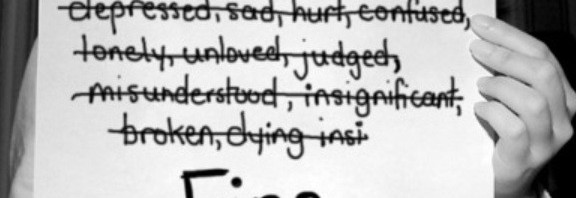 depressed, sad, hurt, confused,
lonely, unloved, judged,
misunderstood, insignificant,
broken, dying insi